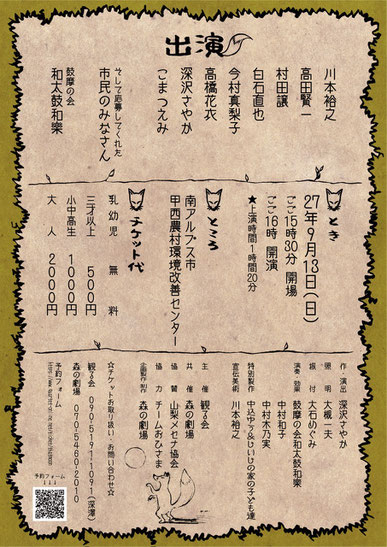 出演
川本裕之
高田賢一
村田譲
白石直也
今村真梨子
高橋花衣
深沢さやか
こまつえみ
そして応募してくれた
市民のみなさん
鼓摩の会
和太鼓和樂
とき
27年9月13日(日)
ごご15時30分 開場
ごご16時 開演
★上演時間1時間20分
ところ
南アルプス市
甲西農村環境改善センター
チケット代
乳幼児 無料
三才以上 500円
小中高生 1000円
大人 2000円
作・演出 深沢さやか
照明 大槻一夫
振付 大石めぐみ
演奏・効果 鼓摩の会和太鼓和樂
中村和子
中村木乃実
特別製作 中込ゆう&けいけの家の子ども達
宣伝美術 川本裕之
主催 観る会
共催 森の劇場
協賛 山梨メセナ協会
協力 チームおひさま
企画製作制作 森の劇場
☆チケットお取り扱い、お問い合わせ☆
観る会 090-5191-1091(深澤)
森の劇場 070-5460-2010
予約フォーム
予約フォーム
↓↓↓